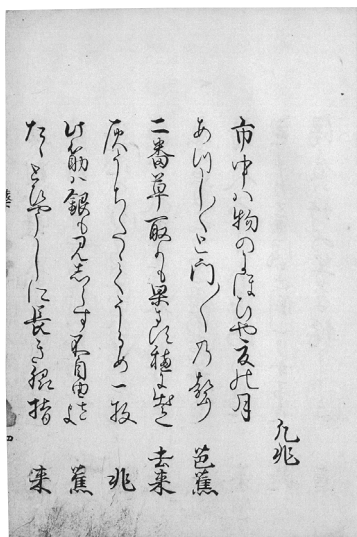 凡兆
市中ハ物のにほひや夏の月
あつし／＼と門／＼の聲 芭蕉
二番草取りも果さす穂に出て 去来
灰うちたゝくうるめ一枚 兆
此筋ハ銀も見しらす不自由さよ 蕉
たゝとひやうしに長き脇指 来